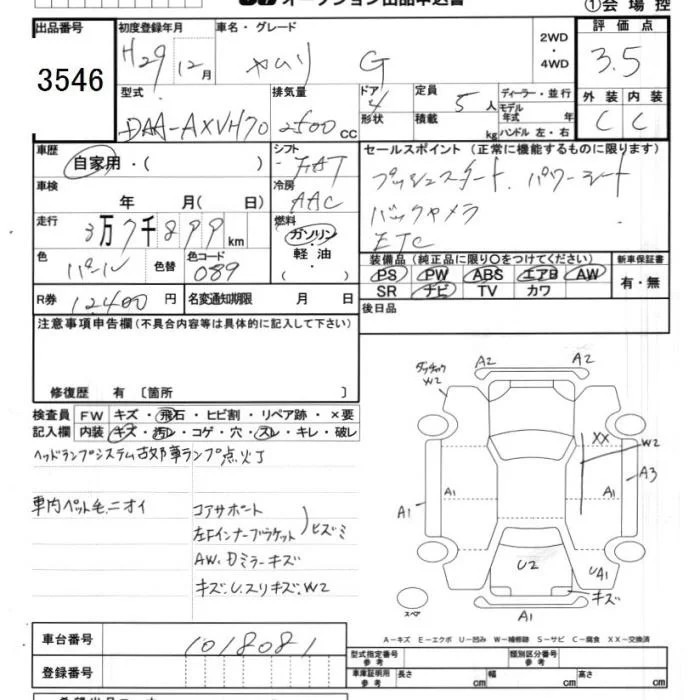 オークション出品申込書
①会場控
出品番号
3546
初度登録年月
H29 12月
車名・グレード
カムリ G
2WD
・
4WD
評価点
3.5
型式
DAA-AXVH70
排気量
2500 CC
ドア
4
形状
定員
5 人
積載
kg
ディーラー・並行
モデル
年式 年
ハンドル 左・右
外装 内装
C C
車歴
自家用・( )
シフト
FAT
セールスポイント(正常に機能するものに限ります)
プッシュスタート、パワーシート
バックカメラ
ETC
車検
年 月( 日)
冷房
AAC
走行
3万7千899km
燃料
ガソリン
・
軽油
( )
色
パール
色替
色コード
089
装備品(純正品に限り〇をつけてください)
新車保証書
PS PW ABS エアB AW
SR ナビ TV カワ
有・無
R券 12400 円
名変通知期限 月 日
後日品
注意事項申告欄(不具合内容等は具体的に記入して下さい)
修復歴 有〔箇所 〕
検査員 FW キズ・飛石・ヒビ割・リペア跡・×要
記入欄 内装 キズ・汚レ・コゲ・穴・スレ・キレ・破レ
ヘッドランプシステム故障車ランプ点火丁
車内ペット毛、ニオイ
コアサポート
左Fインナーブラケット
ヒズミ
AW、Dミラーキズ
キズ、U、スリキズ、W2
ダッチャク
W2
A2
A2
XX
W2
A3
A1
A1
A1
U2
UA1
キズ
A1
スペア
A-キズ E-エクボ U-凹み W-補修跡 S-サビ C-腐食 XX-交換済
車台番号 1018081
登録番号
型式指定番号
参考
類別区分番号
参考
車庫証明用
参考
長さ cm
幅 cm
高さ cm